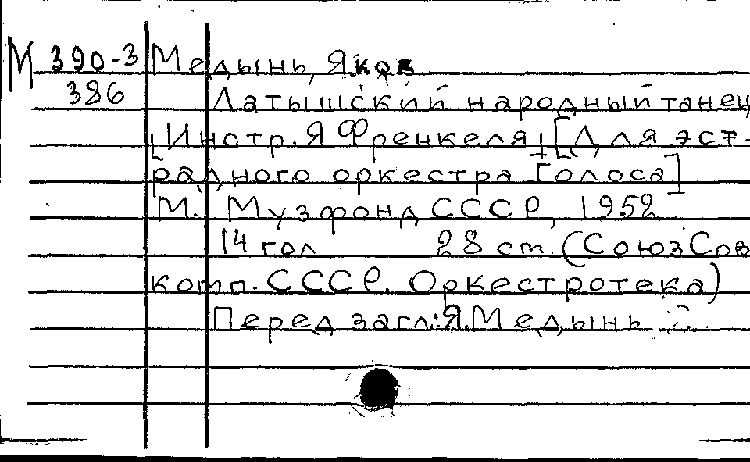 М 390-3 Медынь, Яков
386 Латышский народный танец
Инстр. Я Френкеля [Для эст-
радного оркестра Голоса]
М. Музфонд СССР, 1952
14 гол 28 см (Союз Сов
комп. СССР. Оркестротека)
Перед загл: Я. Медынь